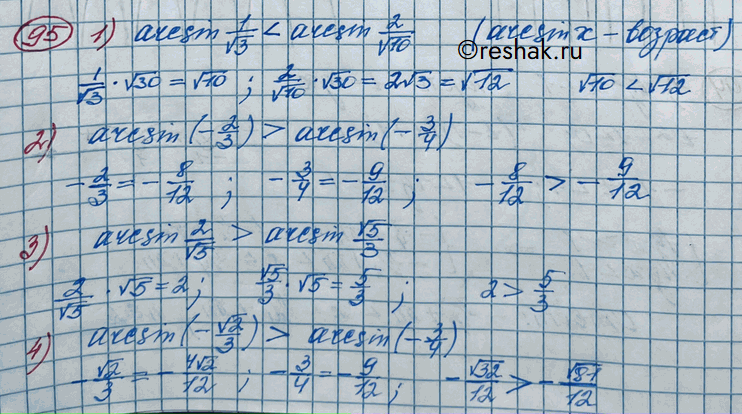 95 1) arcsin 1/√3 < arcsin 2/√10 (arcsin x – возраст)
©reshak.ru
1/√3 · √30 = √10 ; 2/√10 · √30 = 2√3 = √12 √10 < √12
2) arcsin (-2/3) > arcsin (-3/4)
-2/3 = -8/12 ; -3/4 = -9/12 ; -8/12 > -9/12
3) arcsin 2/√5 > arcsin √5/3
2/√5 · √5 = 2 ; √5/3 · √5 = 5/3 ; 2 > 5/3
4) arcsin (-√2/3) > arcsin (-3/4)
-√2/3 = -4√2/12 ; -3/4 = -9/12 ; -√32/12 > -√81/12